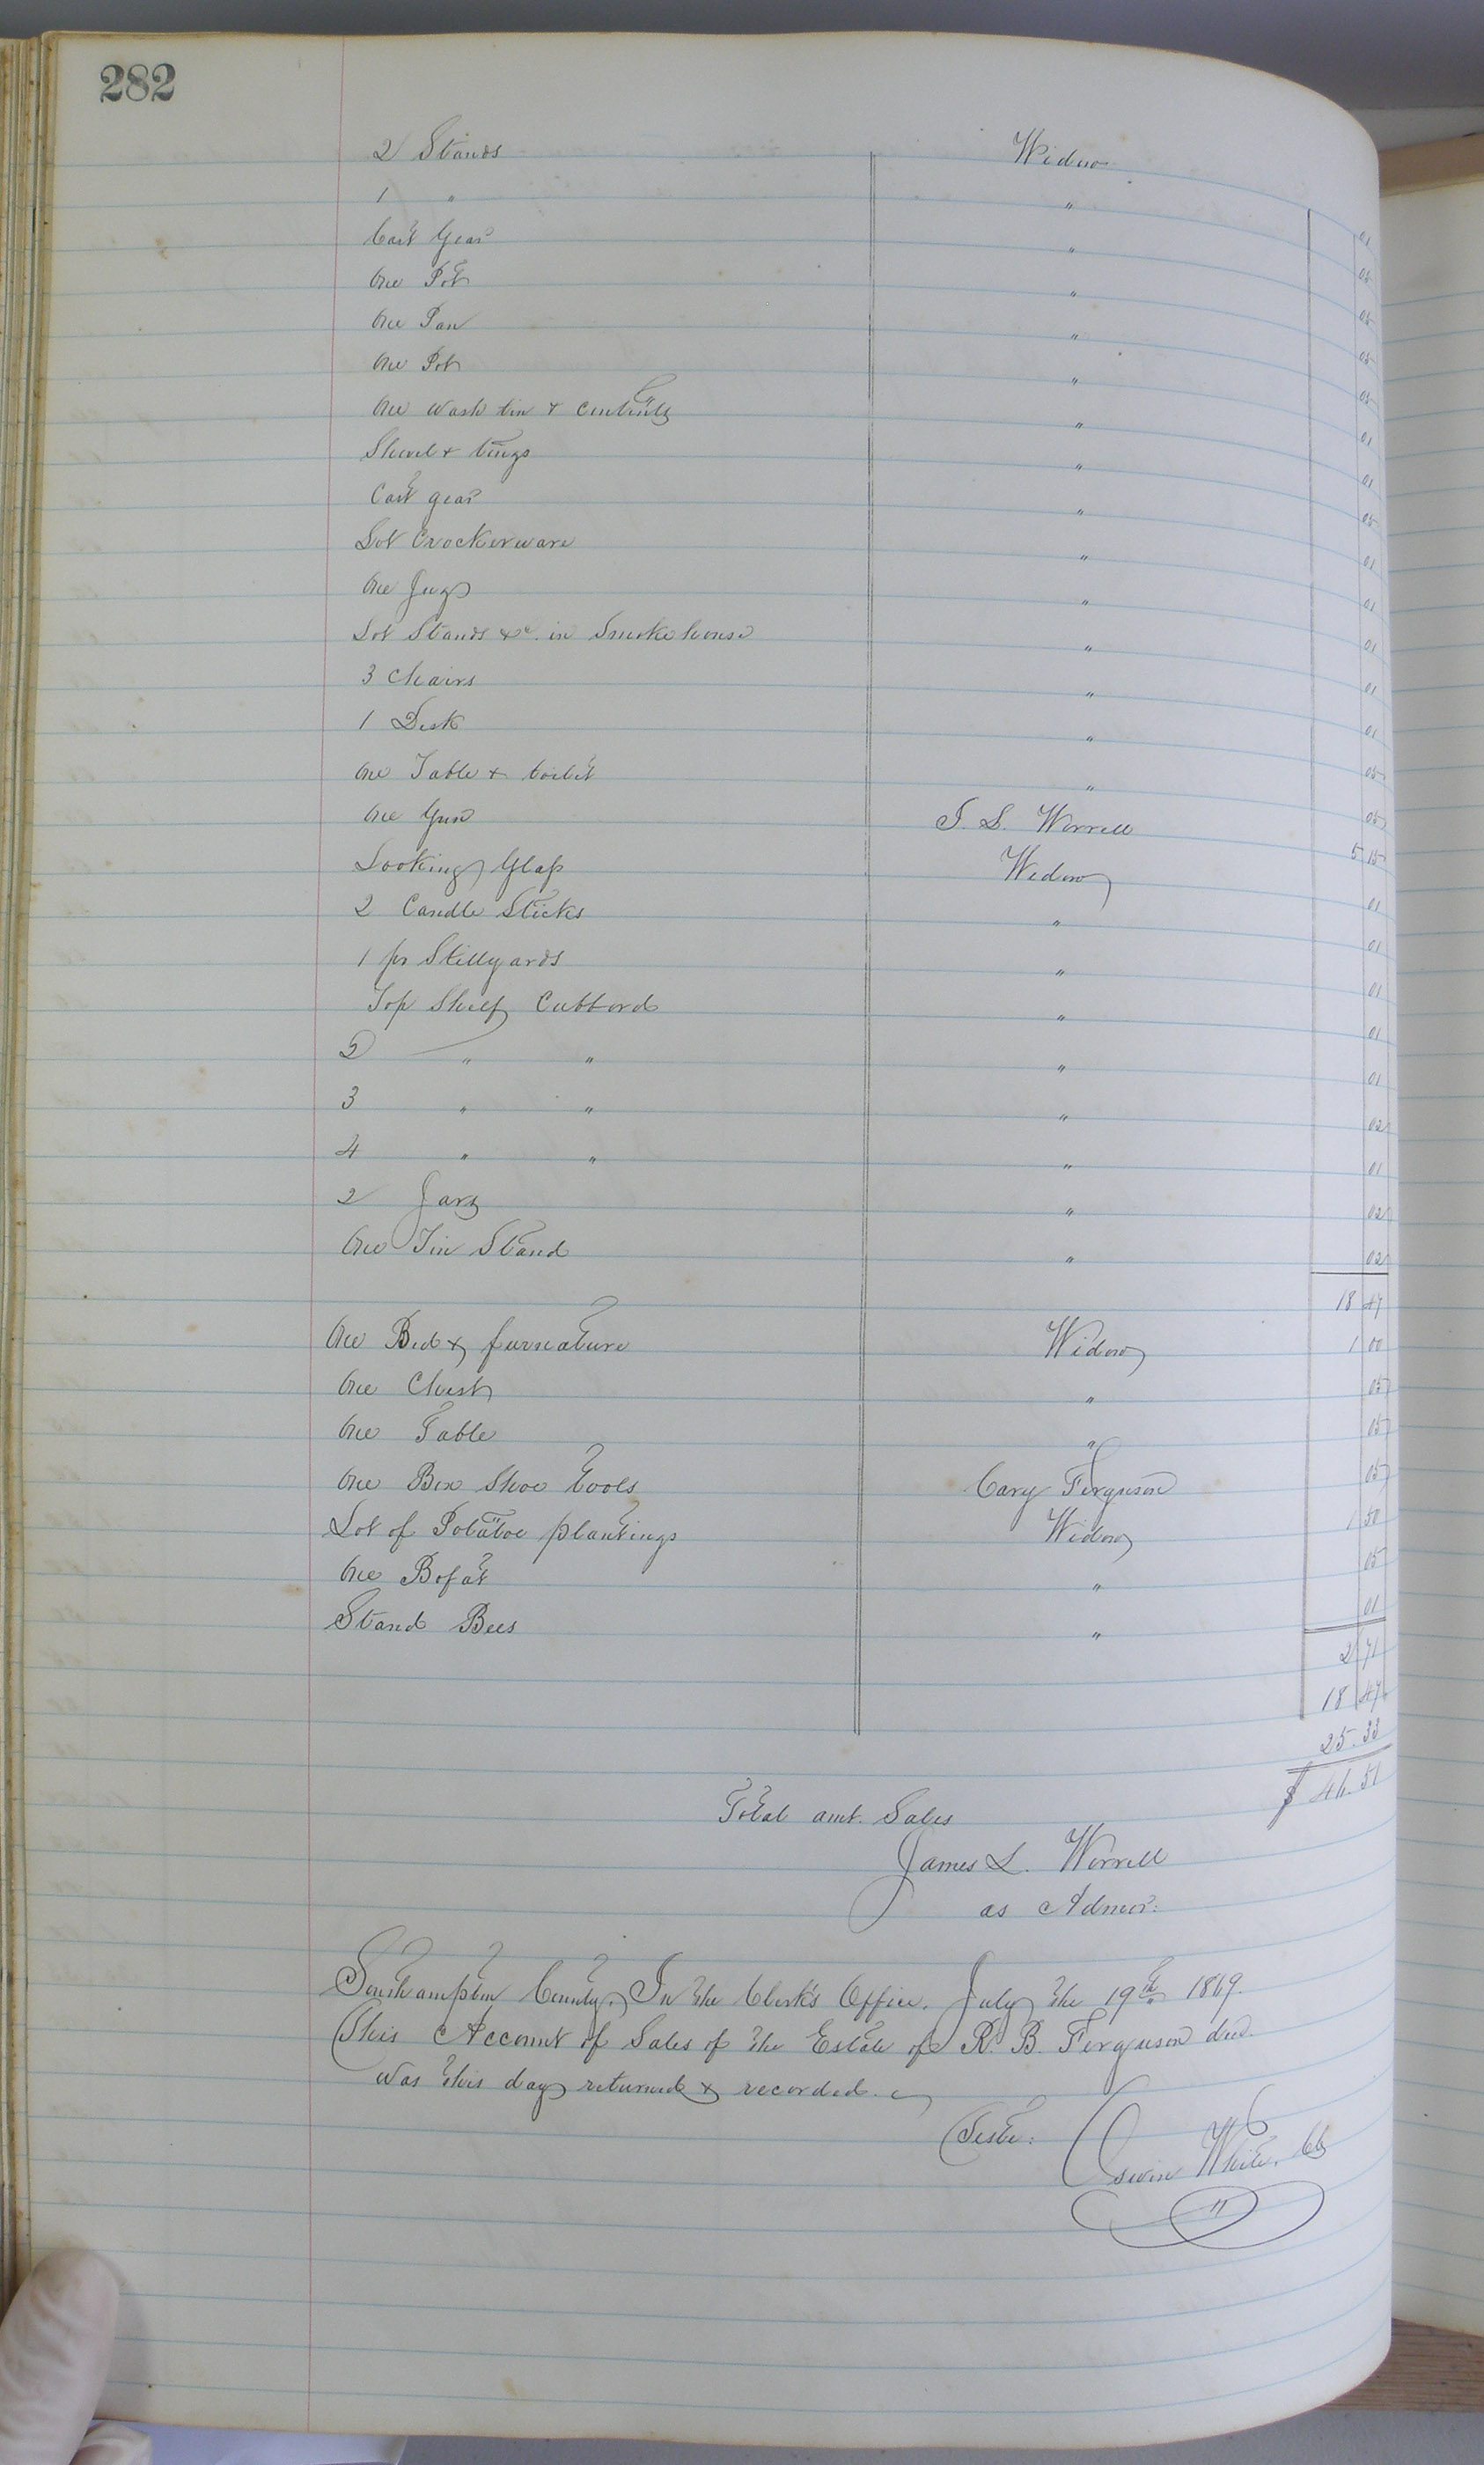 282
2 Stands Widow 01
1 " " 05
Cart Gear " 05
One Pot " 05
One Pan " 05
One Pot " 01
One wash tin & contents " 01
Shovel & tongs " 05
Cart gear " 01
Lot Crockerware " 01
One Jug " 01
Lot Stands &c. in Smoke house " 01
3 Chairs " 01
1 Desk " 05
One Table & toilet " 05
One Gun J. L. Worrell 5 15
Looking Glass Widow 01
2 Candle Sticks " 01
1 pr Stillyards " 01
Top Shelf Cubbord " 01
2 " " " 01
3 " " " 02
4 " " " 01
2 Jars " 02
One Tin Stand " 02
18 47
One Bed & furneature Widow 1 00
One Chest " 05
One Table " 05
One Box Shoe tools Cary Ferguson 05
Lot of Potatoe plantings Widow 1 50
One Bofat " 05
Stand Bees " 01
2 71
18 47
25.33
Total amt. Sales $ 46.51
James L. Worrell
as Admor:
Southampton County. In the Clerk's Office. July the 19th 1869.
This Account of Sales of the Estate of R. B. Ferguson decd.
was this day returned & recorded.
Teste: Edwin White. Clk